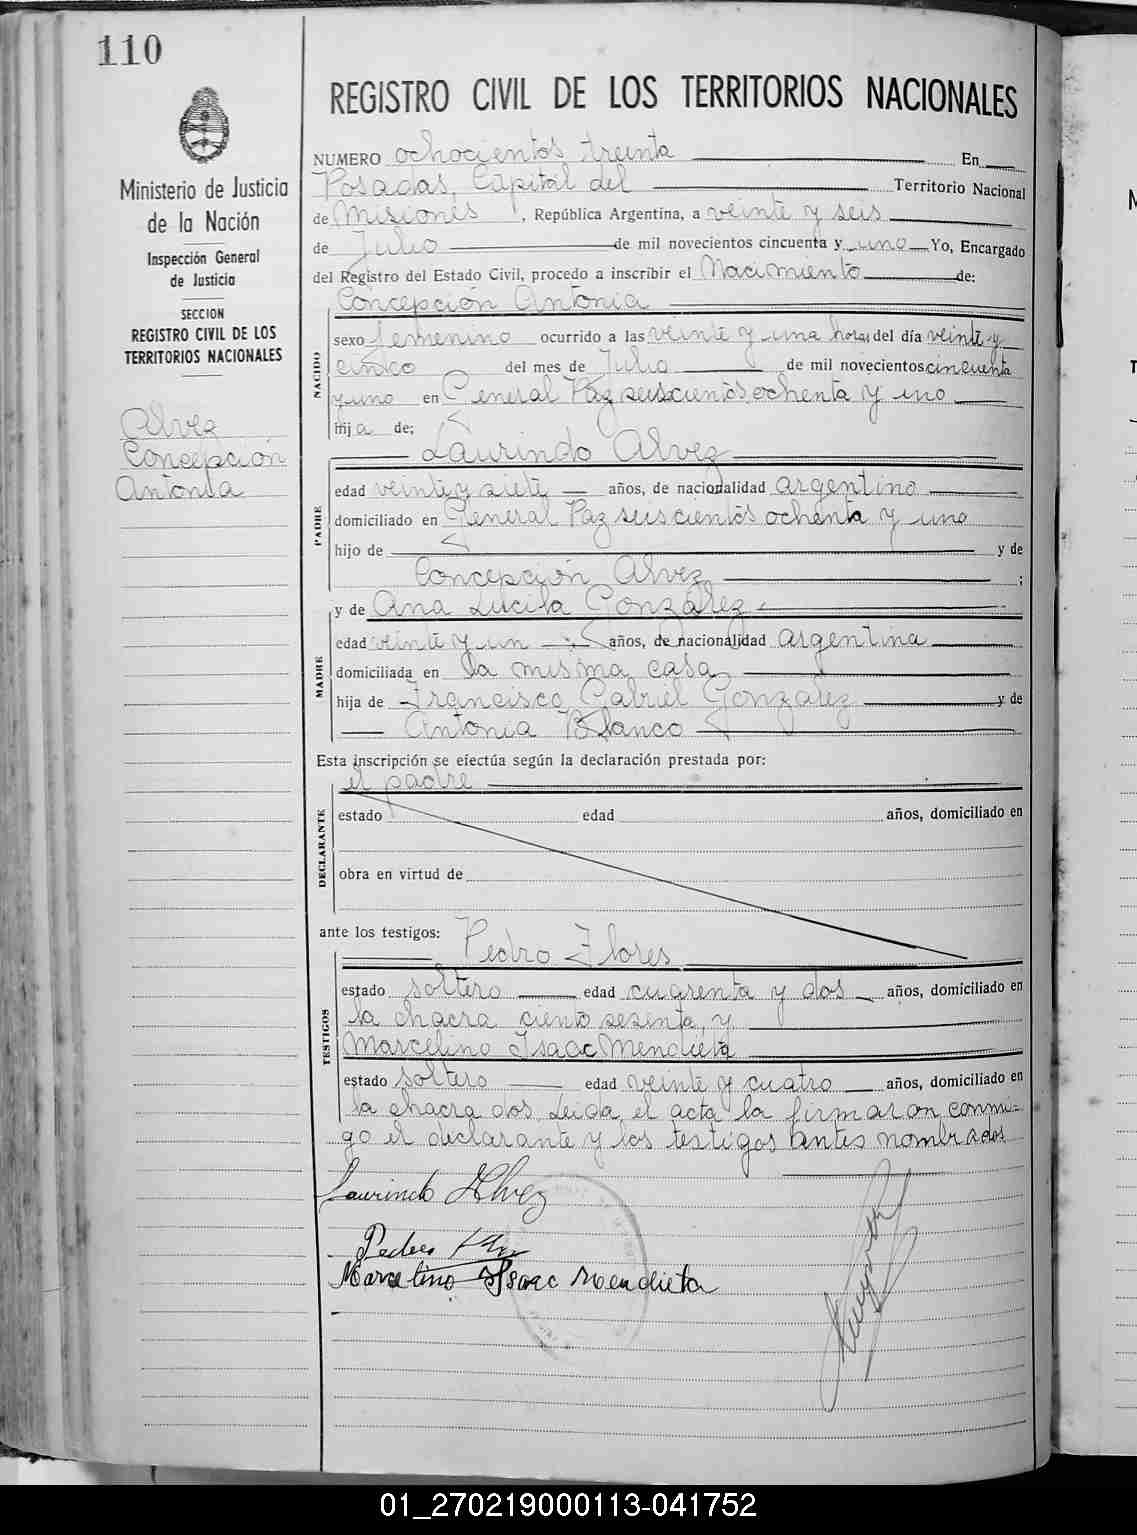 110
Ministerio de Justicia
de la Nación
Inspección General
de Justicia
SECCION
REGISTRO CIVIL DE LOS
TERRITORIOS NACIONALES
Alvez
Concepción
Antonia
REGISTRO CIVIL DE LOS TERRITORIOS NACIONALES
NUMERO ochocientos treinta En
Posadas, Capital del Territorio Nacional
de Misiones, República Argentina, a veinte y seis
de Julio de mil novecientos cincuenta y uno Yo, Encargado
del Registro del Estado Civil, procedo a inscribir el Nacimiento de:
Concepción Antonia
NACIDO
sexo femenino ocurrido a las veinte y una horas del día veinte y
cinco del mes de Julio de mil novecientos cincuenta
y uno en General Paz seiscientos ochenta y uno
hija de;
Laurindo Alvez
PADRE
edad veinte y siete años, de nacionalidad argentino
domiciliado en General Paz seiscientos ochenta y uno
hijo de y de
Concepción Alvez ;
y de Ana Lucila González
MADRE
edad veinte y un años, de nacionalidad argentina
domiciliada en la misma casa
hija de Francisco Gabriel González y de
Antonia Blanco
Esta inscripción se efectúa según la declaración prestada por:
el padre
DECLARANTE
estado edad años, domiciliado en
obra en virtud de
ante los testigos: Pedro Flores
TESTIGOS
estado soltero edad cuarenta y dos años, domiciliado en
la chacra ciento sesenta y
Marcelino Isaac Mendieta
estado soltero edad veinte y cuatro años, domiciliado en
la chacra dos. Leida el acta la firmaron conmi-
go el declarante y los testigos antes nombrados
Laurindo Alvez
Pedro
Marcelino Isaac Mendieta
01_270219000113-041752